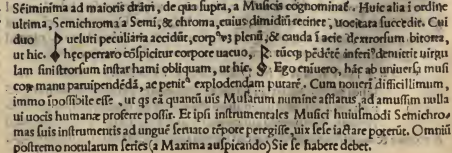 Sēiminima ad maioris drām, de qua supra, a Musicis cognominat̄. Huic alia i ordine
ultima, Semichroma a Semi, & chroma, cuius dimidiū retinet, uocitata succedit. Cui
duo ueluti peculiaria accidūt, corp⁹ꝫ plenū, & cauda i acie dextrorsum bitorta,
ut hic. hęc perraro cōspicitur corpore uacuo, tūcqꝫ pēdētē inferi⁹ denuicit uirgu
lam sinistrorsum instar hami obliquam, ut hic. Ego eniuero, hāc ab uniuersa musi
coꝝ manu paruipendēdā, ac penit⁹ explodendam putarē. Cum noueri difficillimum,
immo īpossibile esse, ut qs eā quantūuis Musarum numine afflatus, ad amussim nulla
ui uocis humanæ proferre possit. Et ipsi instrumentales Musici huiusmodi Semichro⸗
mas suis instrumentis ad ungué seruato tēpore peregisse, uix sese iactare poterūt. Omniū
postremo notularum series (a Maxima auspicando) Sic se habere debet.